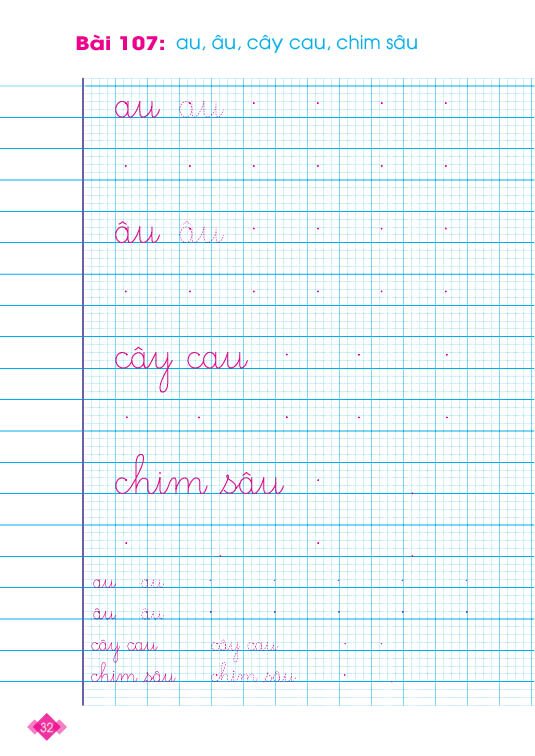 Bài 107: au, âu, cây cau, chim sâu
au au
âu âu
cây cau
chim sâu
au au
âu âu
cây cau cây cau
chim sâu chim sâu
32